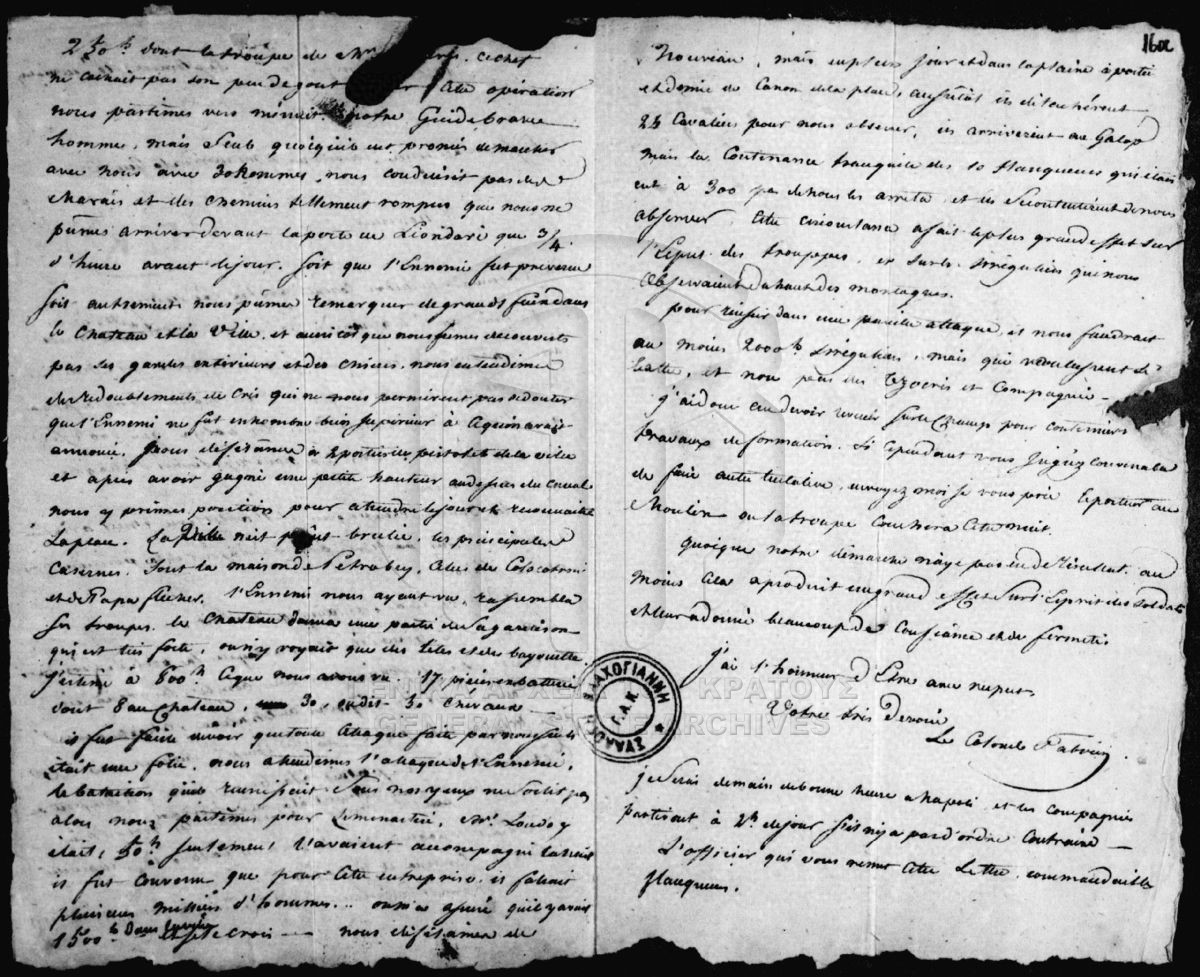 250h dont la troupe de Mr
ne cachait pas son peu de gout cette opération
nous partimes vers minuit. notre Guide brave
homme, mais seul quoiqu'il eut promis de marcher
avec nous avec 30 hommes, nous conduisit par des
Marais et des chemins tellement rompus que nous ne
pumes arriver devant la porte de Léondari que 3/4
d'heure avant le jour. soit que l'Ennemi fut prevenu
soit autrement nous pumes remarquer de grands feux dans
le Chateau et la Ville, et aussitôt que nous fumes découverts
par les gardes extérieurs et des chiens, nous entendimes
des redoublements de cris qui ne nous permirent pas de douter
que l'Ennemi ne fut en nombre bien supérieur à ce qu'on avait
annoncé. nous défilâmes à 2 portées de pistolet de la ville
et après avoir gagné une petite hauteur au dessus du
nous y primes position pour attendre le jour et reconnaitre
la place. La Ville n'est point brulée, les principales
Casernes. sont la maison de Petrobey, celles de Colocotroni
et de Papa flechas. l'Ennemi nous ayant vu, rassembla
ses troupes. le Chateau donna une partie de sa garnison
qui est très forte, on n'y voyait que des têtes et des bayonettes
j'estime à 800h ce que nous avons vu. 17 pièces en batterie
dont 8 au Chateau, 30, on dit 50 chevaux —
il fut facile de voir que toute attaque faite par nous seuls
était une folie, nous attendimes l'attaque de l'Ennemi,
le bataillon qu'il réunissait sous nos yeux ne sortit pas
alors nous partimes pour Mr.
était, 50h. seulement l'avaient accompagné
il fut convenu que pour cette entreprise il fallait
plusieurs milliers d'hommes... on m'a assuré qu'il y avait
1500h dans et je le crois — nous défilames de
16α
Nouveau, mais en plein jour et dans la plaine à portée
et demie de Canon de la place, aussitôt ils détachèrent
25 Cavaliers pour nous observer, ils arriverent au Galop
mais la Contenance tranquile des 10 flanqueurs qui étai
ent à 300 pas de nous les arreta, et ils se contentèrent de nous
observer. Cette circonstance a fait le plus grand effet sur
l'Esprit des trouppes, et sur les irréguliers qui nous
observaient du haut des montagnes.
pour réussir dans une pareille attaque, il nous faudrait
au moins 2000h irréguliers, mais qui voulussent se
battre, et non pas des et Compagnie —
j'ai donc cru devoir revenir sur le champ pour continuer
travaux de formation. Si Cependant vous jugiez convenable
de faire autre tentative, envoyez moi je vous prie le porteur au
Moulin ou la troupe couchera cette nuit.
quoique notre démarche n'aye pas eu de résultat, au
moins cela a produit un grand effet sur l'Esprit des soldats
et leur a donné beaucoup de Confiance et de fermeté.
j'ai l'honneur d'Etre avec respect
Votre très Devoué
Le Colonel Fabvier
je serai demain de bonne heure a Napoli et les compagnies
partiront à 2h de jour s'il n'y a pas d'ordre Contraire —
L'officier qui vous remet cette Lettre commandait les
flanqueurs.
ΣΥΛΛΟΓΗ ΒΛΑΧΟΓΙΑΝΝΗ
Γ.Α.Κ.
ΓΕΝΙΚΑ ΑΡΧΕΙΑ ΤΟΥ ΚΡΑΤΟΥΣ
GENERAL STATE ARCHIVES